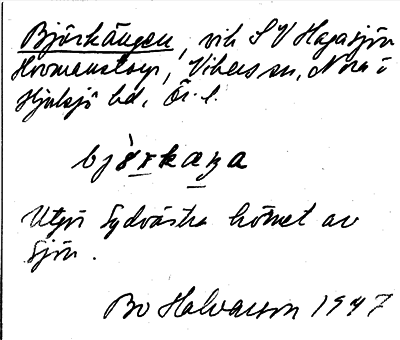 Björkängen, vik SV Hagasjön
Hovmanstorp, Vikers sn, Nora o
Hjulsjö hd, Ör. l.
björkæŋa
Utgör Sydvästra hörnet av
sjön.
Bo Halvarson 1947